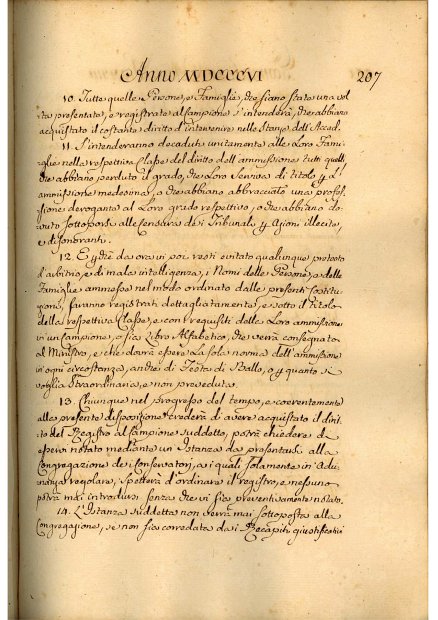 Anno MDCCCVI 207
10. Tutte quelle Persone, e Famiglie, che siano state una vol
ta presentate, e registrate al Campione s'intenderà, che abbiano
acquistato il costante diritto d'intervenire nelle Stanze dell'Accad.
11. S'intenderanno decadute unitamente alle Loro Fami
glie nella respettiva Classe del diritto dell'ammissione tutti quelli,
che abbiano perduto il grado, che Loro serviva di titolo p. l'
ammissione medesima, o che abbiano abbracciato una profes
sione derogante al Loro grado respettivo, o che abbiano do
vuto sottoporsi alle Censure dei Tribunali p. Azioni illecite,
e disonoranti.
12. E p.che da ora in poi resti evitato qualunque pretesto
d'arbitrio, e di mala intelligenza, i Nomi delle Persone, e delle
Famiglie ammesse nel modo ordinato dalle presenti Costitu
zioni, saranno registrati dettagliatamente, e sotto il titolo
della respettiva Classe, e con requisiti della Loro ammissione
in un Campione, o sia Libro Alfabetico, che verrà consegnato
al Ministro, e che dovrà essere la sola norma dell'ammissione
in ogni circostanza, anche di Festa di Ballo, o p. quanto si
voglia straordinaria, e non preveduta.
13. Chiunque nel progresso del tempo, e coerentemente
alle presente disposizione crederà di avere acquistato il dirit
to del Registro al Campione suddetto, potrà chiedere di
esservi notato mediante un Istanza da presentarsi alla
Congregazione de Conservatori, a i quali solamente in Adu
nanza regolare, spetterà d'ordinare il registro, e nessuno
potrà mai introdursi senza che vi sia preventivamente notato.
14. L'Istanza suddetta non verrà mai sottoposta alla
Congregazione, se non sia corredata dai Recapiti giustificativi